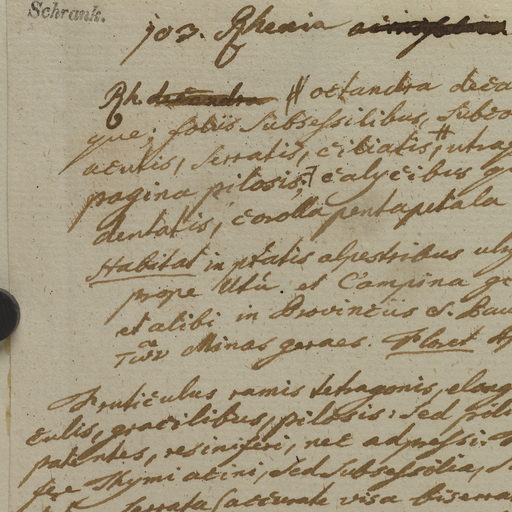 Schrank.
103. Rhexia
Rh. decandra octandra deca
que; foliis subsessilibus, subco
acutis, serratis, ciliatis, utraq
pagina pilosis; calycibus qu
dentatis, corolla pentapetala
Habitat in pratis alpestribus
prope Utú. et Campina gr
et alibi in Provinciis S. Pau
Minas geraes. Floret
Fruticulus, ramis tetragonis, elong
tulis, gracilibus, pilosis: sed pili
patentes, resiniferi, nec adpressi.
fere Thymi acini, sed subsessilia,
serrata (accurate visa biserra